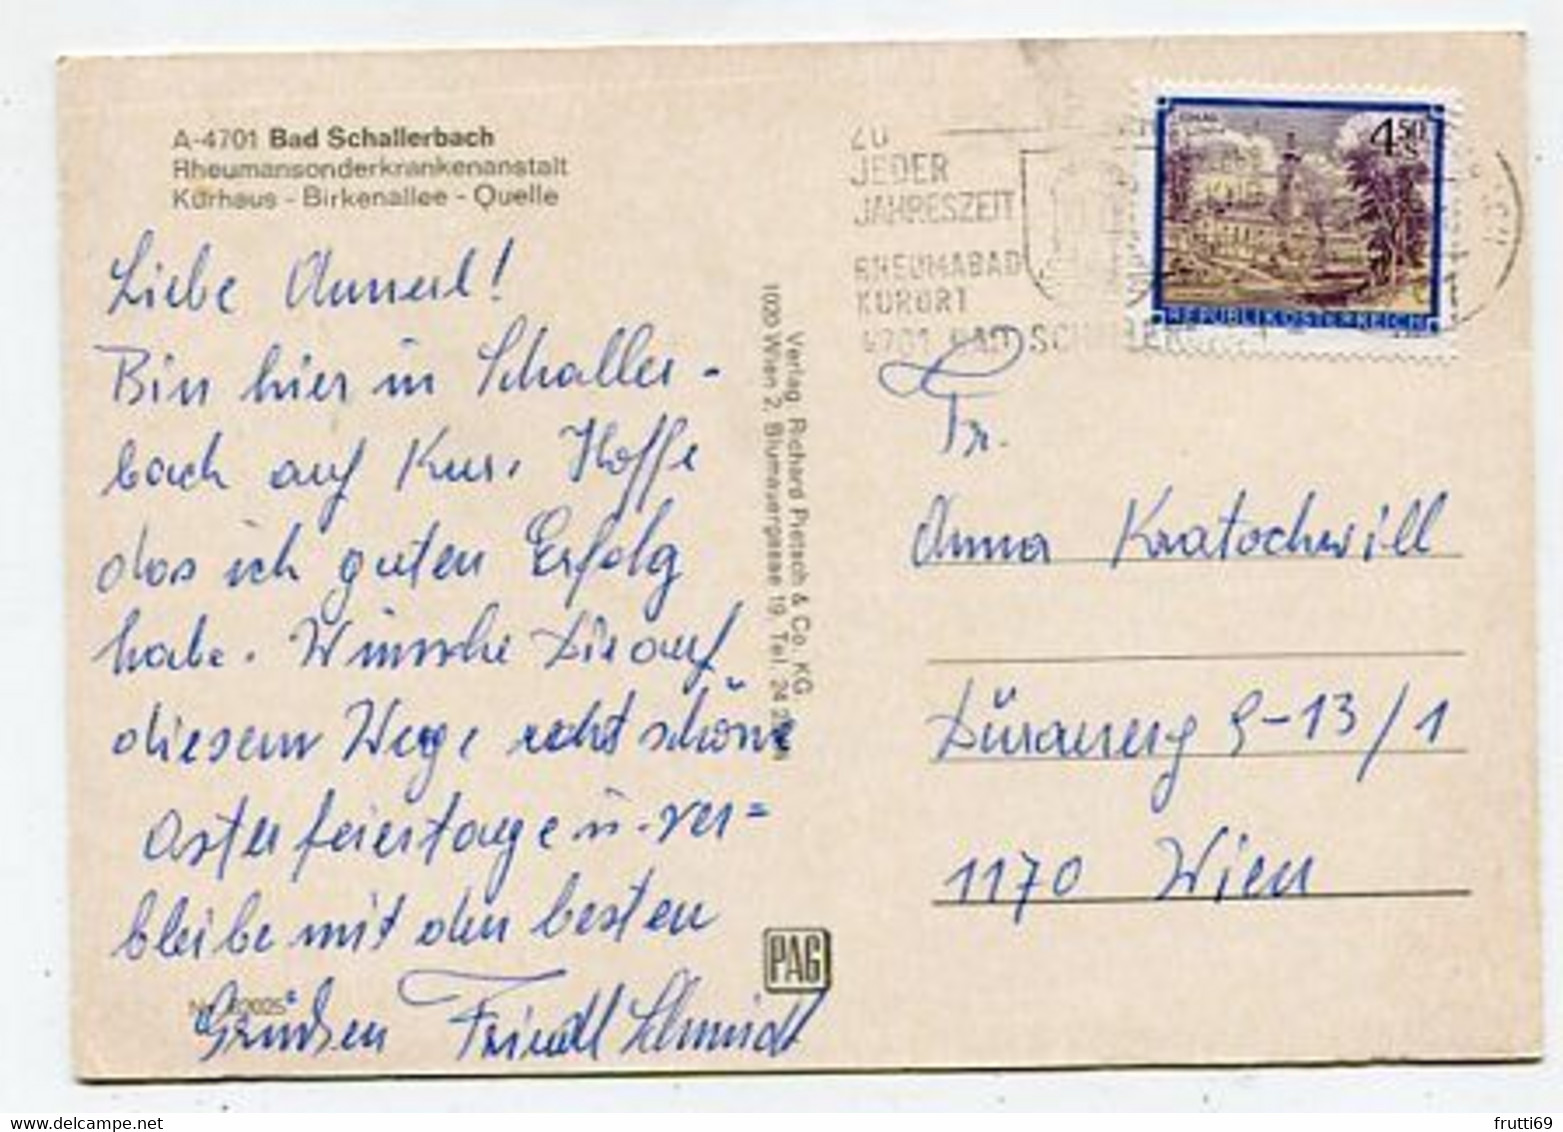 A-4701 Bad Schallerbach
Rheumansonderkrankenanstalt
Kurhaus - Birkenallee - Quelle
Liebe Annerl!
Bin hier in Schaller-
bach auf Kur. Hoffe
das ich guten Erfolg
habe. Wünsche Dir auf
diesem Wege recht schöne
Osterfeiertage u. ver=
bleibe mit den besten
Grüßen Friedl Schmidt
Nr.
Verlag: Richard Pietsch & Co. KG
1020 Wien 2, Blumauergasse 19, Tel. 24
PAG
ZU
JEDER
JAHRESZEIT
RHEUMABAD
KURORT
4701 BAD SCHALLERBACH
4.50 S
REPUBLIK ÖSTERREICH
Fr.
Anna Kratochwill
9-13/1
1170 Wien
frutti69